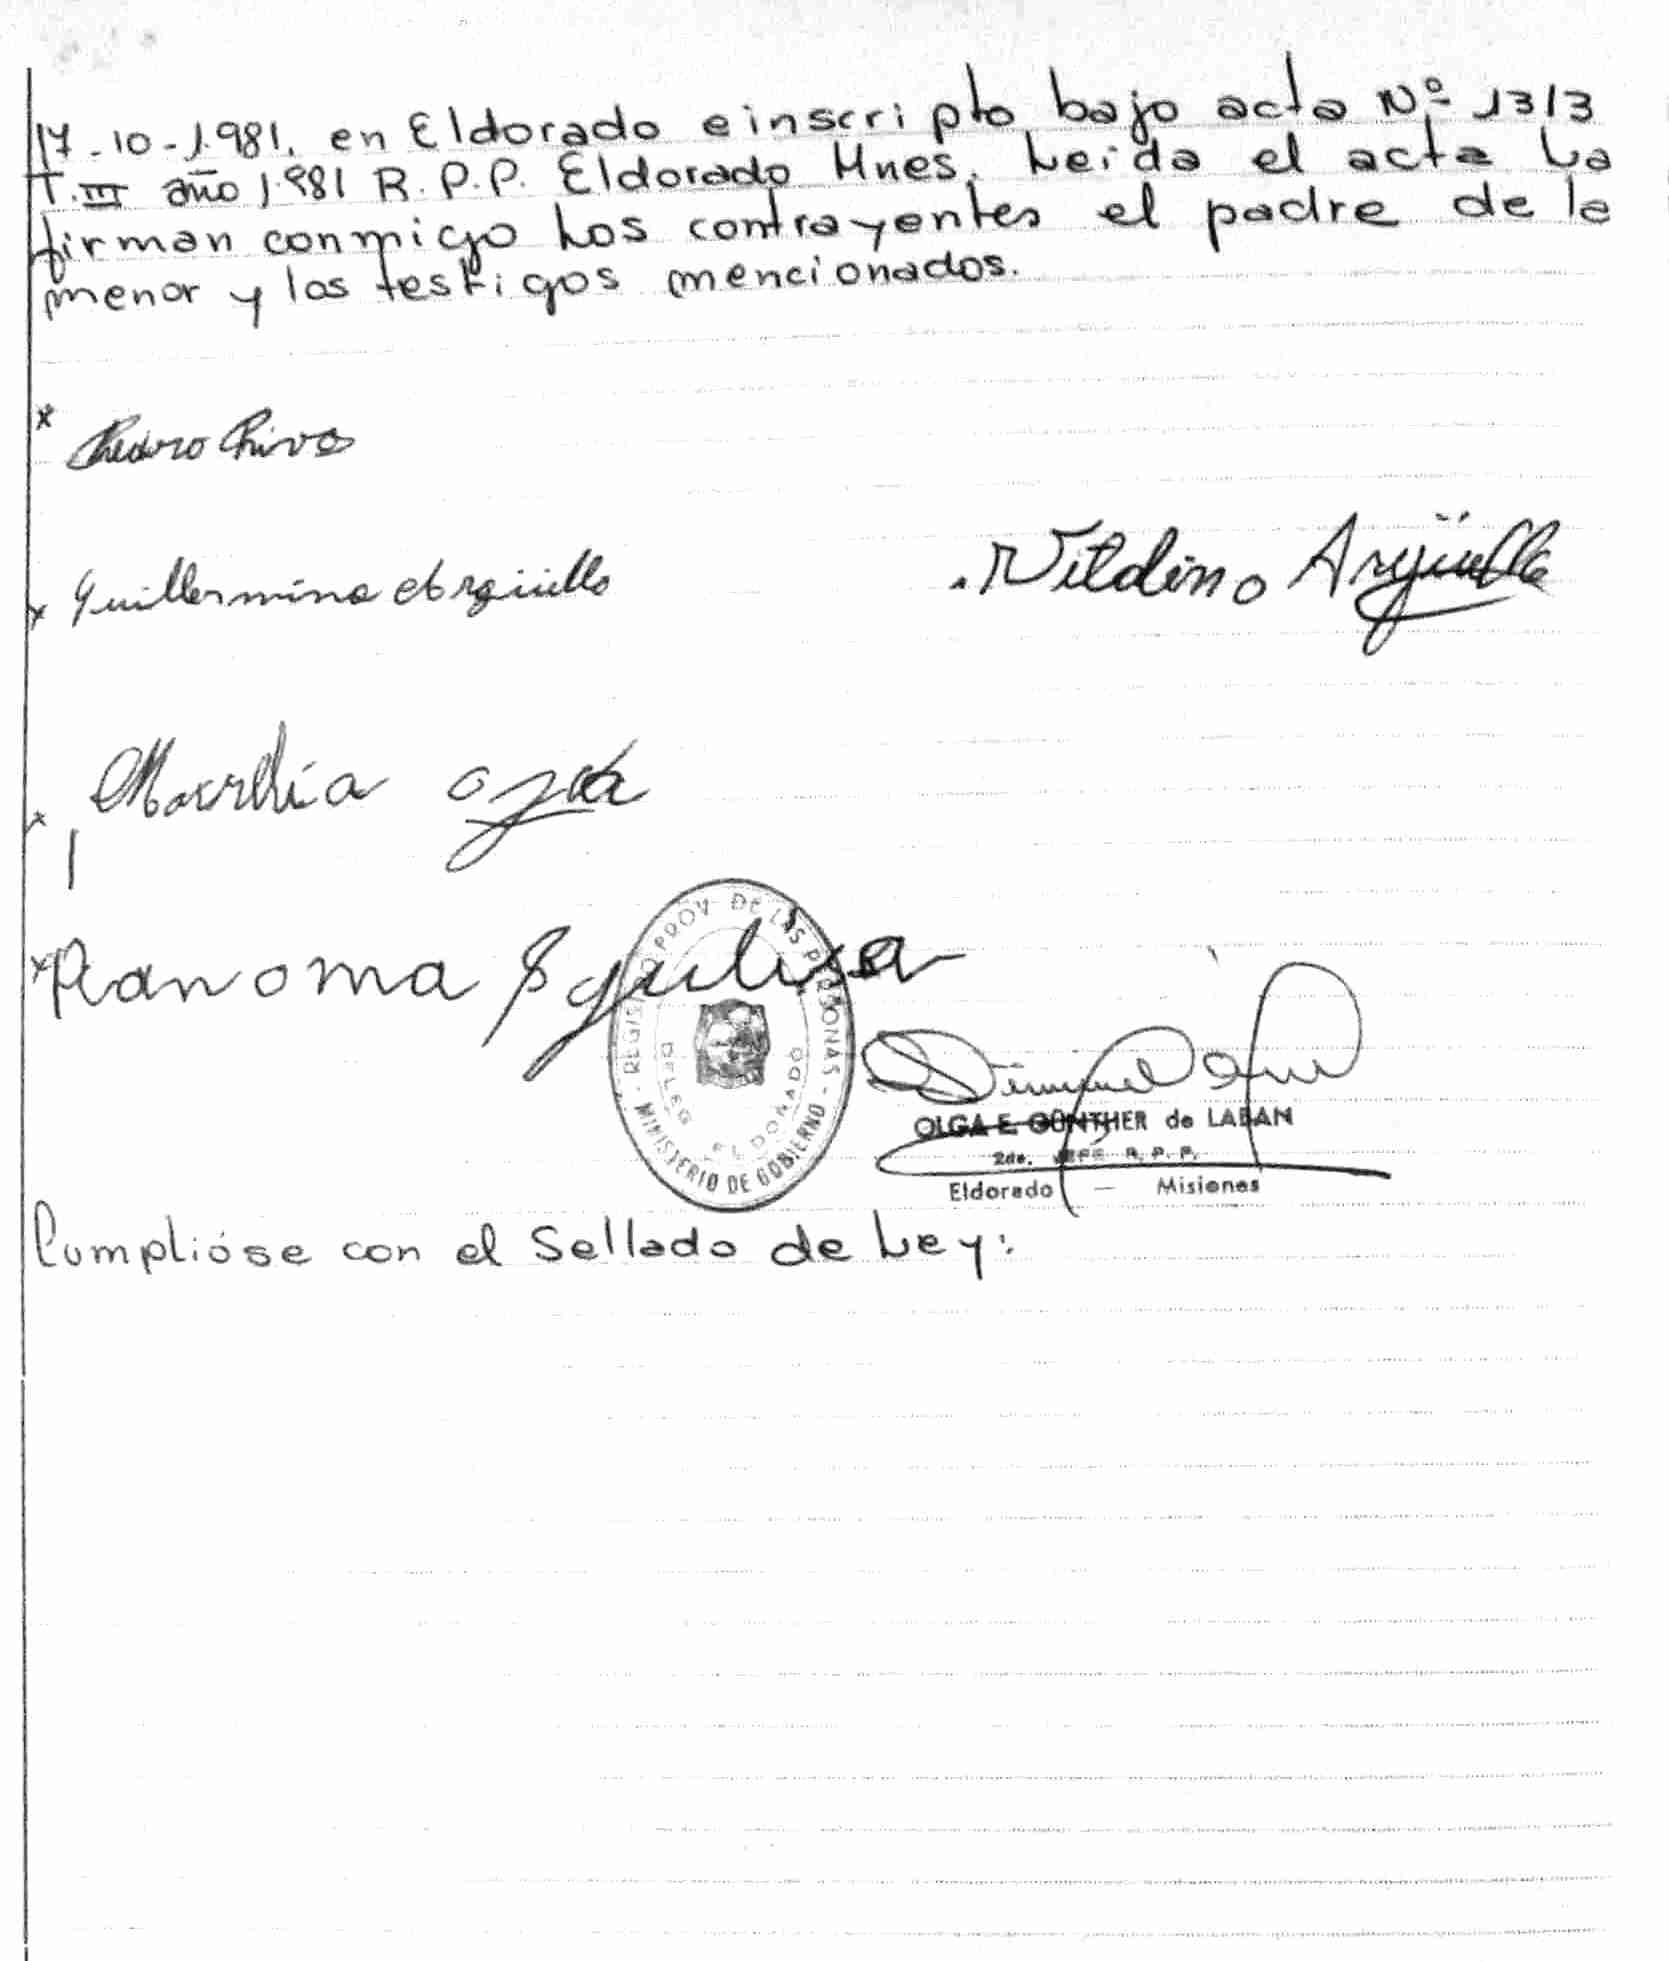 17-10-1.981. en Eldorado e inscripto bajo acta Nº 1313
T.III año 1.981 R.P.P. Eldorado Mnes. Leida el acta La
firman conmigo Los contrayentes el padre de la
menor y los testigos mencionados.
x
Pedro Riva
x Guillermina Argüello
Vildino Argüello
x
x
REGISTRO PROV. DE LAS PERSONAS - MINISTERIO DE GOBIERNO -
DELEG. ELDORADO
OLGA E. GÜNTHER de LABAN
2do. JEFE R. P. P.
Eldorado — Misiones
Cumplióse con el Sellado de Ley: